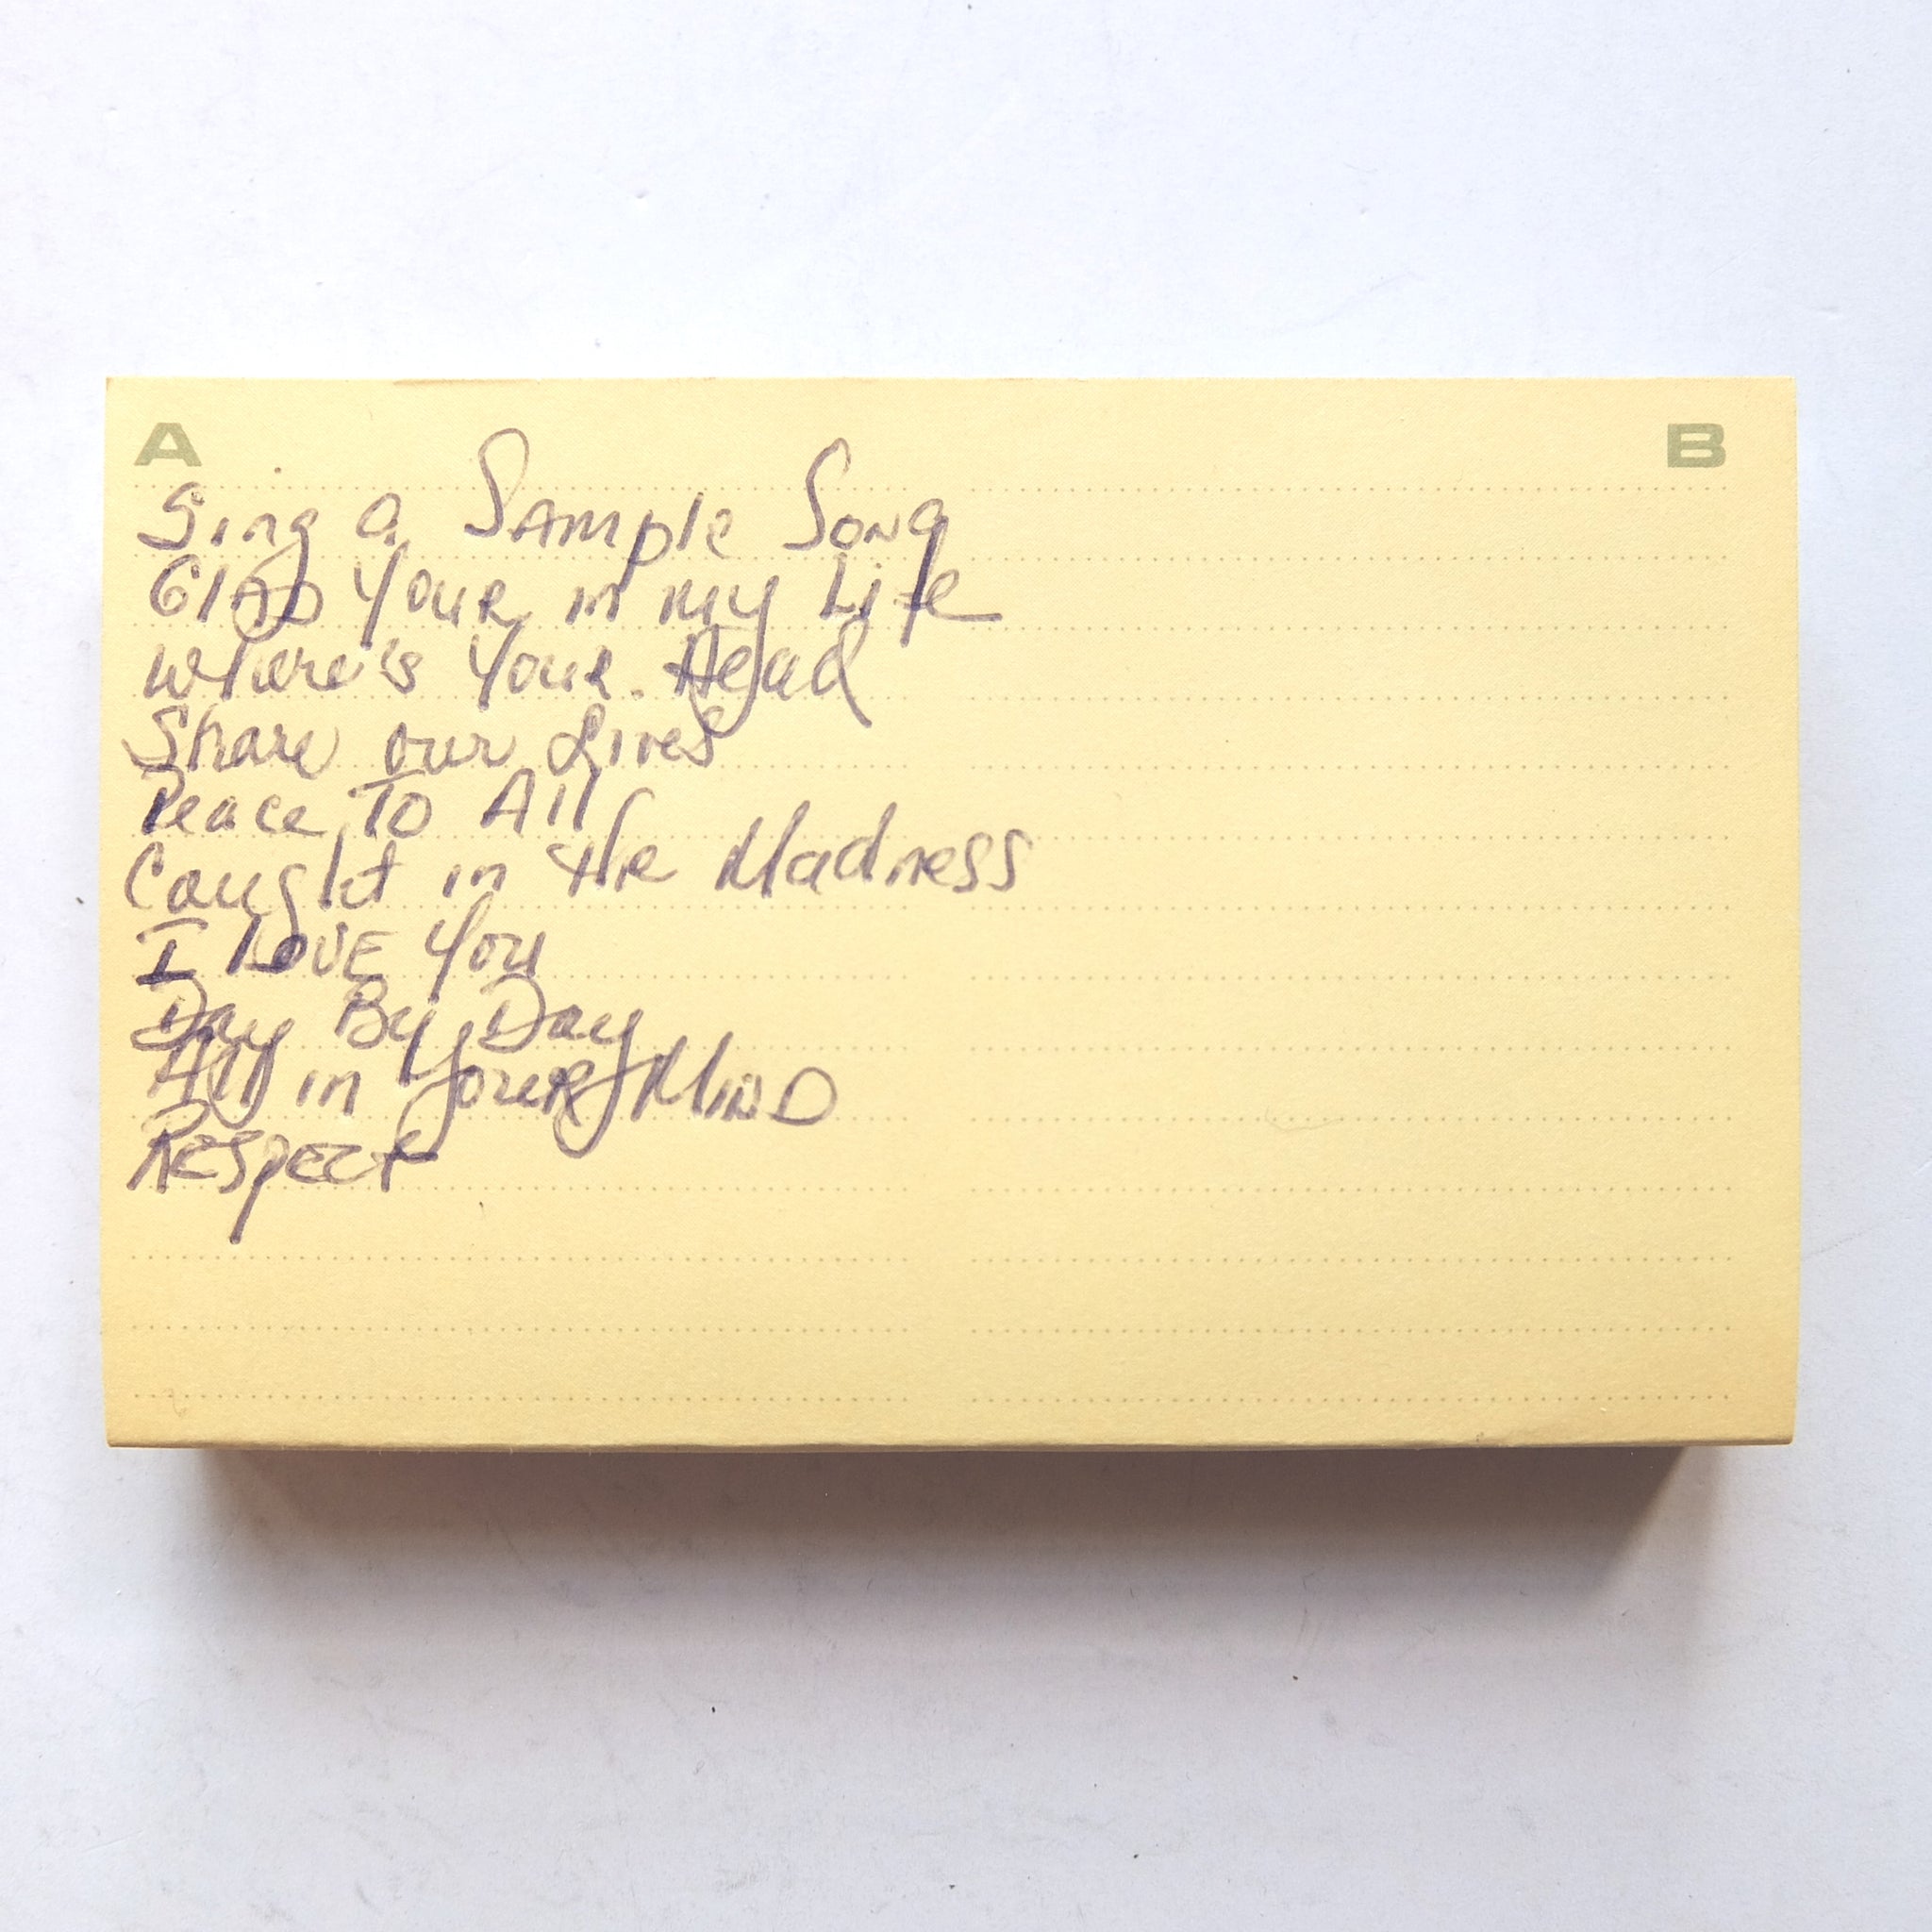 A B
Sing a Sample Song
Glad Your in my Life
Where's Your Head
Share our Lives
Peace To All
Caught in the Madness
I Love You
Day By Day
All in Your Mind
Respect